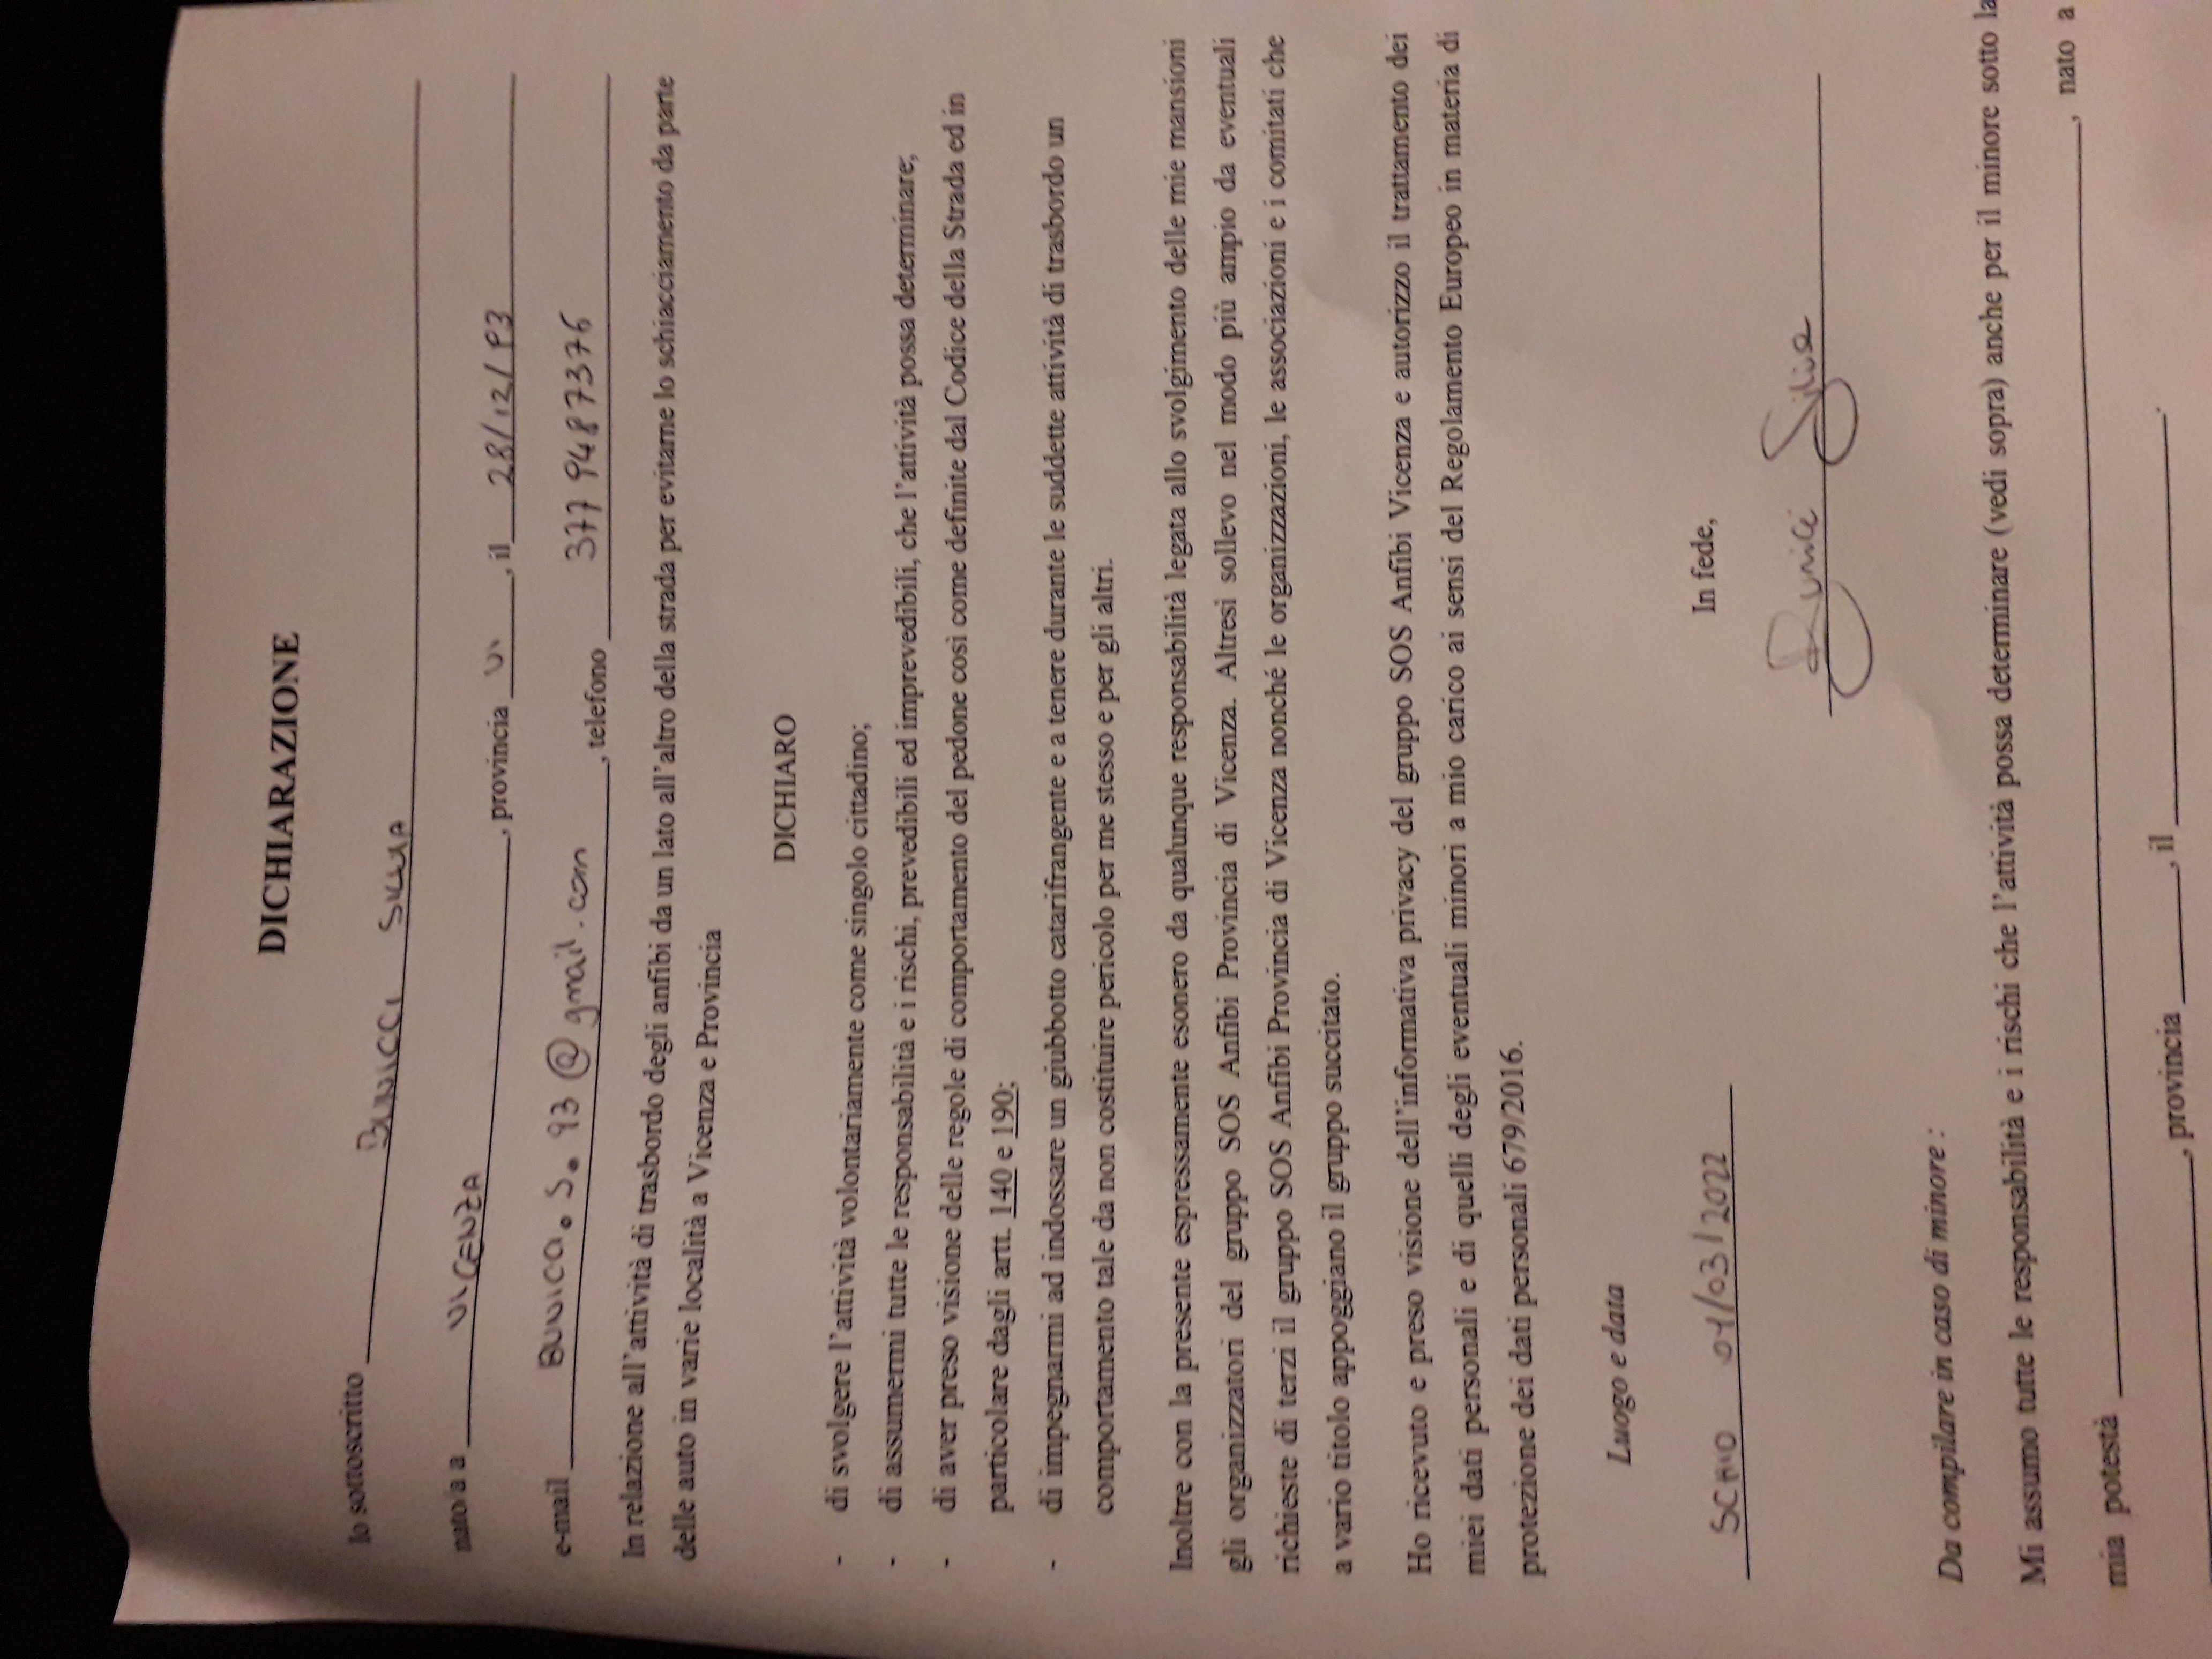 DICHIARAZIONE
Io sottoscritto BUNICCI SILVIA
nato/a a VICENZA, provincia VI, il 28/12/93
e-mail @gmail.com, telefono 377 9487376
In relazione all'attività di trasbordo degli anfibi da un lato all'altro della strada per evitarne lo schiacciamento da parte
delle auto in varie località a Vicenza e Provincia
DICHIARO
- di svolgere l'attività volontariamente come singolo cittadino;
- di assumermi tutte le responsabilità e i rischi, prevedibili ed imprevedibili, che l'attività possa determinare;
- di aver preso visione delle regole di comportamento del pedone così come definite dal Codice della Strada ed in
particolare dagli artt. 140 e 190;
- di impegnarmi ad indossare un giubbotto catarifrangente e a tenere durante le suddette attività di trasbordo un
comportamento tale da non costituire pericolo per me stesso e per gli altri.
Inoltre con la presente espressamente esonero da qualunque responsabilità legata allo svolgimento delle mie mansioni
gli organizzatori del gruppo SOS Anfibi Provincia di Vicenza. Altresì sollevo nel modo più ampio da eventuali
richieste di terzi il gruppo SOS Anfibi Provincia di Vicenza nonché le organizzazioni, le associazioni e i comitati che
a vario titolo appoggiano il gruppo succitato.
Ho ricevuto e preso visione dell'informativa privacy del gruppo SOS Anfibi Vicenza e autorizzo il trattamento dei
miei dati personali e di quelli degli eventuali minori a mio carico ai sensi del Regolamento Europeo in materia di
protezione dei dati personali 679/2016.
Luogo e data
In fede,
SCHIO /03/2022
Silvia
Da compilare in caso di minore :
Mi assumo tutte le responsabilità e i rischi che l'attività possa determinare (vedi sopra) anche per il minore sotto la
mia potestà , nato a
, provincia , il .